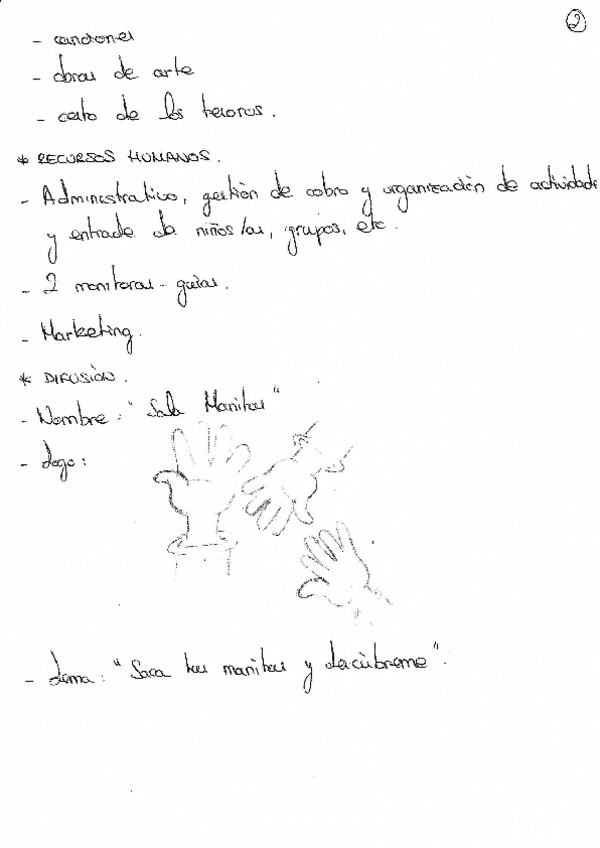 2
- canciones
- obras de arte
- cesto de los tesoros.
* RECURSOS HUMANOS.
- Administrativo, gestión de cobro y organización de actividade
y entrada de niños/as, grupos, etc.
- 2 monitoras - guías.
- Marketing.
* DIFUSIÓN.
- Nombre: "Sala Manitas"
- Logo:
- Lema: "Saca tus manitas y descúbreme".